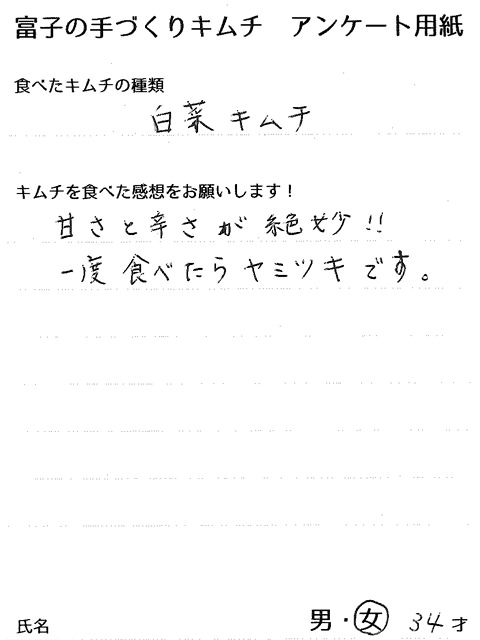 富子の手づくりキムチ　アンケート用紙
食べたキムチの種類
白菜キムチ
キムチを食べた感想をお願いします！
甘さと辛さが絶妙!!
一度食べたらヤミツキです。
氏名
男・女 34才